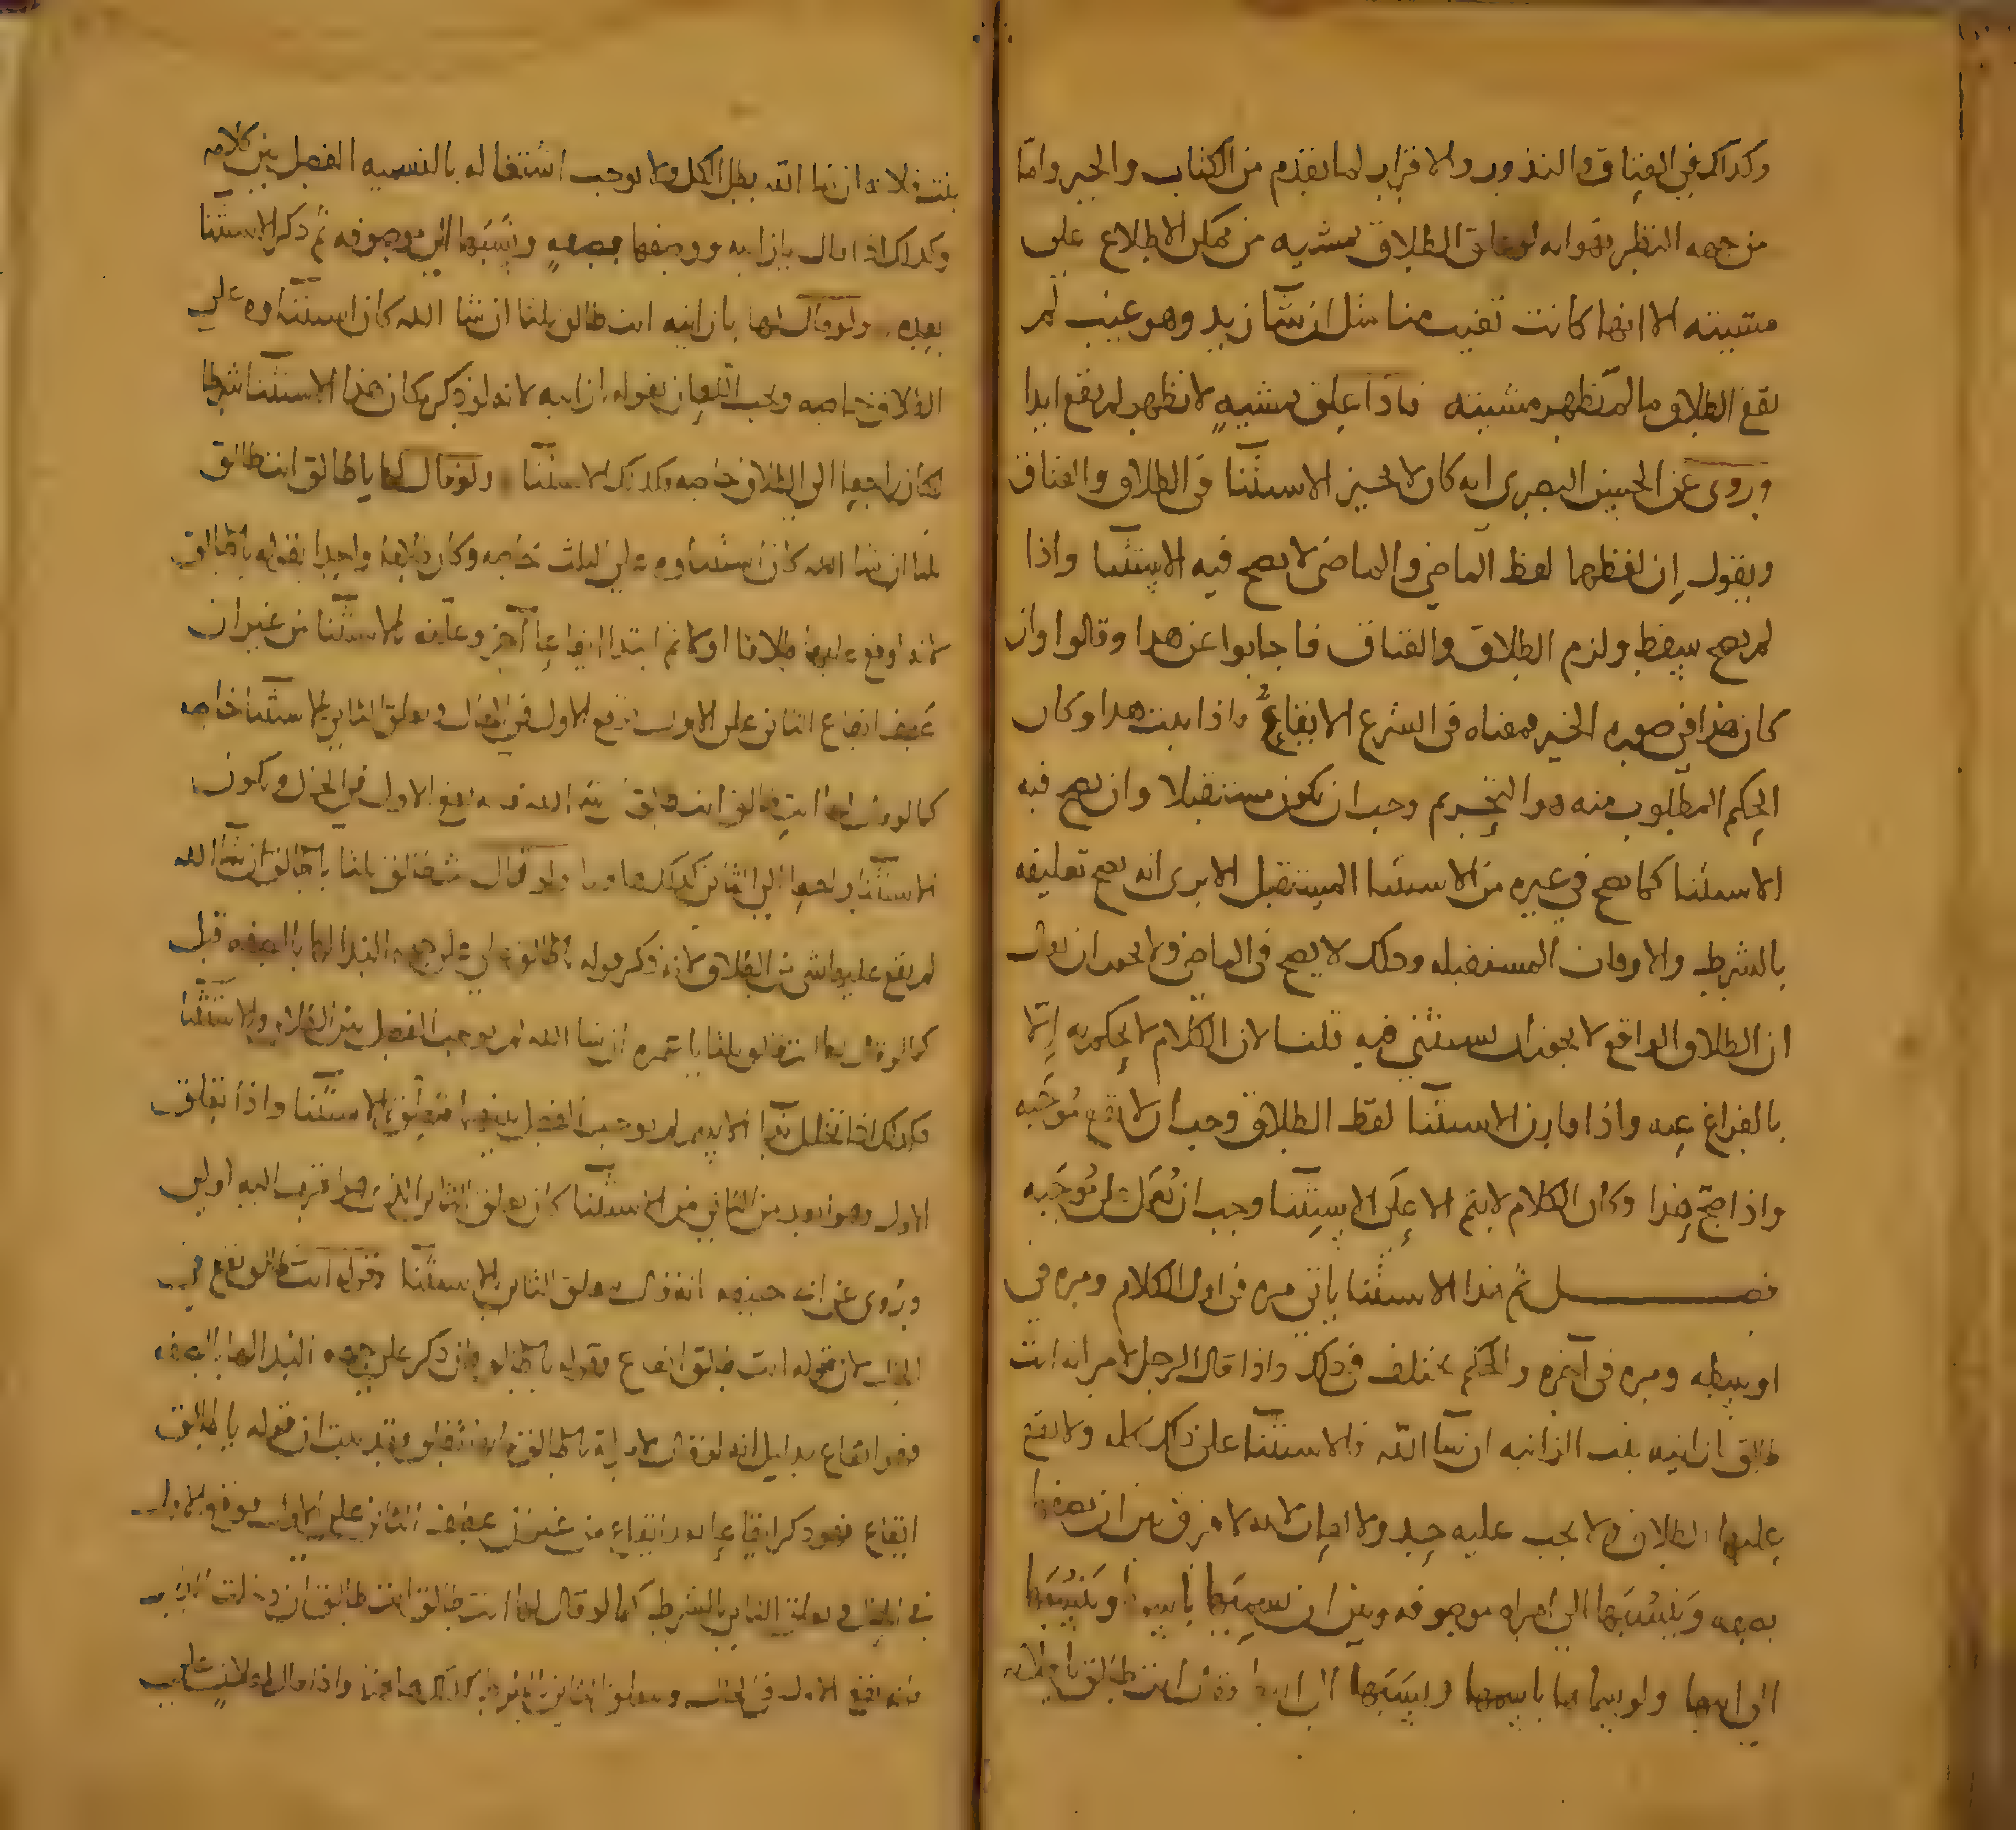 وكذلك في العتاق والنذور والاقرار لما تقدم من الكتاب والخبر واما
من جهه النظر فهو انه لو علق الطلاق بمشيه من يمكن الاطلاع على
مشيته الا انها كانت تغيب عنا مثل ان شا زيد وهو غيب لم
يقع الطلاق ما لم تظهر مشيته فاذا علق بمشيه لا تظهر لم يقع ابدا
وروى عن الحسن البصرى انه كان لا يجيز الاستثنا في الطلاق والعتاق
ويقول ان لفظهما لفظ الماضي والماضي لا يصح فيه الاستثنا واذا
لم يصح سقط ولزم الطلاق والعتاق فاجابوا عن هذا وقالوا وان
كان هذا في صوره الخبر فمعناه في الشرع الايقاع واذا ثبت هذا وكان
الحكم المطلوب منه هو التحريم وجب ان يكون مستقبلا وان يصح فيه
الاستثنا كما يصح في غيره من الاستثنا المستقبل الا يرى انه يصح تعليقه
بالشرط والاوقات المستقبله وذلك لا يصح في الماضي ولا يجوز ان يقال
ان الطلاق الواقع لا يجوز ان يستثني فيه قلنا لان الكلام لا يحكم به الا
بالفراغ عنه واذا قارن الاستثنا لفظ الطلاق وجب ان لا يقع موجبه
واذا صح هذا وكان الكلام لا يتم الا على الاستثنا وجب ان يحمل على موجبه
فصل ثم هذا الاستثنا ياتي مره في اول الكلام ومره في
اوسطه ومره في آخره والحكم يختلف في ذلك واذا قال الرجل لامراته انت
طالق يا زانيه بنت الزانيه ان شا الله فالاستثنا على ذلك كله ولا يقع
عليها الطلاق ولا يجب عليه حد ولا لعان لانه لا فرق بين ان يصفها
بصفه وينسبها الى امراه موصوفه وبين ان يسميها باسمها وينسبها
الى ابيها ولو سماها باسمها ونسبها الى ابيها وقال انت طالق يا فلانه
بنت فلانه ان شا الله بطل الكل ولا يوجب اشتغاله بالتسميه الفصل بين كلامه
وكذلك اذا قال يا زانيه ووصفها بصفه ونسبها الى موصوفه ثم ذكر الاستثنا
بعده ولو قال لها يا زانيه انت طالق ثلثا ان شا الله كان استثناوه على
الطلاق خاصه ويجب اللعان بقوله يا زانيه لانه لو ذكر مكان هذا الاستثنا شرطا
لكان راجعا الى الطلاق خاصه وكذلك الاستثنا ولو قال لها يا طالق انت طالق
ثلثا ان شا الله كان استثناوه على الثلث خاصه وكان طالقا واحدا بقوله يا طالق
لانه اوقع عليها طلاقا اولا ثم ابتدا ايقاعا آخر وعلقه بالاستثنا من غير ان
عطف ايقاع الثاني على الاول فيقع الاول في الحال ويعلق الثاني بالاستثنا خاصه
كما لو قال لها انت طالق انت طالق ان شا الله فانه يقع الاول في الحال ويكون
الاستثنا راجعا الى الثاني كذلك هاهنا ولو قال انت طالق ثلثا يا طالق ان شا الله
لم يقع عليها شي من الطلاق لانه ذكر قوله يا طالق على وجه الندا لها بالصفه قبل
كما لو قال لها انت طالق ثلثا يا عمره ان شا الله لم يوجب الفصل بين الطلاق والاستثنا
وكذلك اذا تخلل ندا الاسم لم يوجب الفصل بينهما فتعلق بالاستثنا واذا تعلق
الاول وهو ابعد من الثاني من الاستثنا كان تعلق الثاني الذي هو اقرب اليه اولى
وروى عن ابي حنيفه انه قال يعلق الثاني بالاستثنا وقوله انت طالق يقع في
الحال لان قوله انت طالق ايقاع وقوله يا طالق وان ذكر على وجه الندا لها بالصفه
فهو ايقاع بدليل انه لو قال لامراته يا طالق فانها تطلق وقد ثبت ان قوله يا طالق
ايقاع فهو ذكر ايقاعا بعد ايقاع من غير عطف الثاني على الاول فوقع الاول
في الحال ويعلق الثاني بالشرط كما لو قال لها انت طالق انت طالق ان دخلت الدار
فانه يقع الاول في الحال ويعلق الثاني بالدخول كذلك هاهنا واذا قال لفلان على